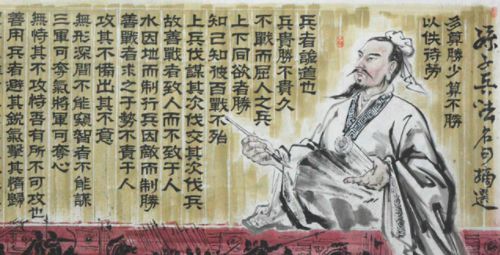 孫子兵法名句摘選
多算勝少算不勝
以佚待勞
兵者詭道也
兵貴勝不貴久
不戰而屈人之兵
上下同欲者勝
知己知彼百戰不殆
上兵伐謀其次伐交其次伐兵
故善戰者致人而不致于人
水因地而制行兵因敵而制勝
善戰者求之于勢不責于人
攻其不備出其不意
無形深間不能窺智者不能謀
三軍可奪氣將軍可奪心
無恃其不攻恃吾有所不可攻也
善用兵者避其銳氣擊其惰歸